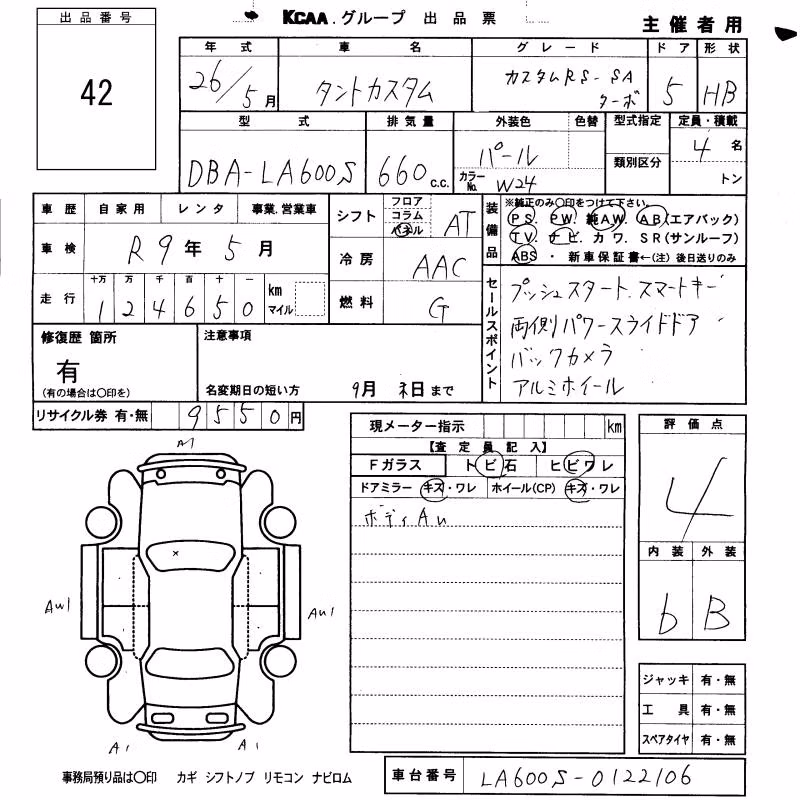 KCAA.グループ 出品票
主催者用
出品番号
42
年式 車名 グレード ドア 形状
26/5月 タントカスタム カスタムRS-SA ターボ 5 HB
型式 排気量 外装色 色替 型式指定 定員・積載
DBA-LA600S 660c.c. パール 4名
カラーNo. W24 類別区分 トン
車歴 自家用 レンタ 事業.営業車
車検 R9年5月
走行 十万 万 千 百 十 一
124650 km マイル
シフト フロア コラム パネル AT
冷房 AAC
燃料 G
装備品 ※純正のみ○印をつけて下さい。
PS. PW. 純AW. AB(エアバック)
TV. ナビ. カワ. SR(サンルーフ)
ABS ・ 新車保証書←(注)後日送りのみ
セールスポイント
プッシュスタート.スマートキー
両側パワースライドドア
バックカメラ
アルミホイール
修復歴 箇所
有
(有の場合は○印を)
注意事項
名変期日の短い方 9月 日まで
リサイクル券 有・無 9550円
現メーター指示 km
【査定員記入】
Fガラス トビ石 ヒビワレ
ドアミラー キズ・ワレ ホイール(CP) キズ・ワレ
ボディAu
評価点
4
内装 外装
b B
A1
AW1
AU1
A1
A1
ジャッキ 有・無
工具 有・無
スペアタイヤ 有・無
事務局預り品は○印 カギ シフトノブ リモコン ナビロム
車台番号 LA600S-0122106